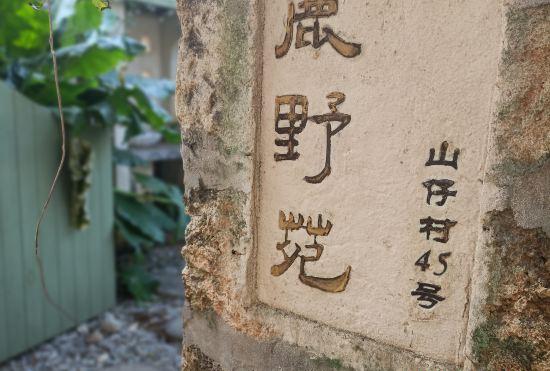 鹿野苑
山仔村45号